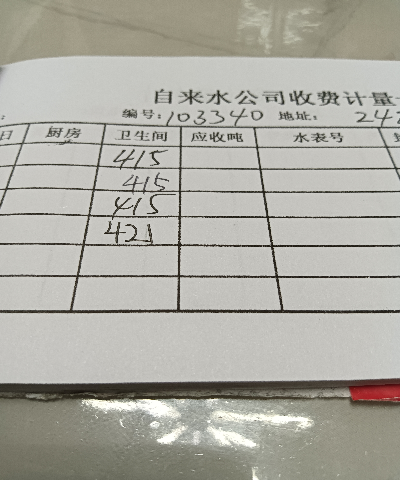 自来水公司收费计量
编号:103340 地址:
日 厨房 卫生间 应收吨 水表号
415
415
415
421